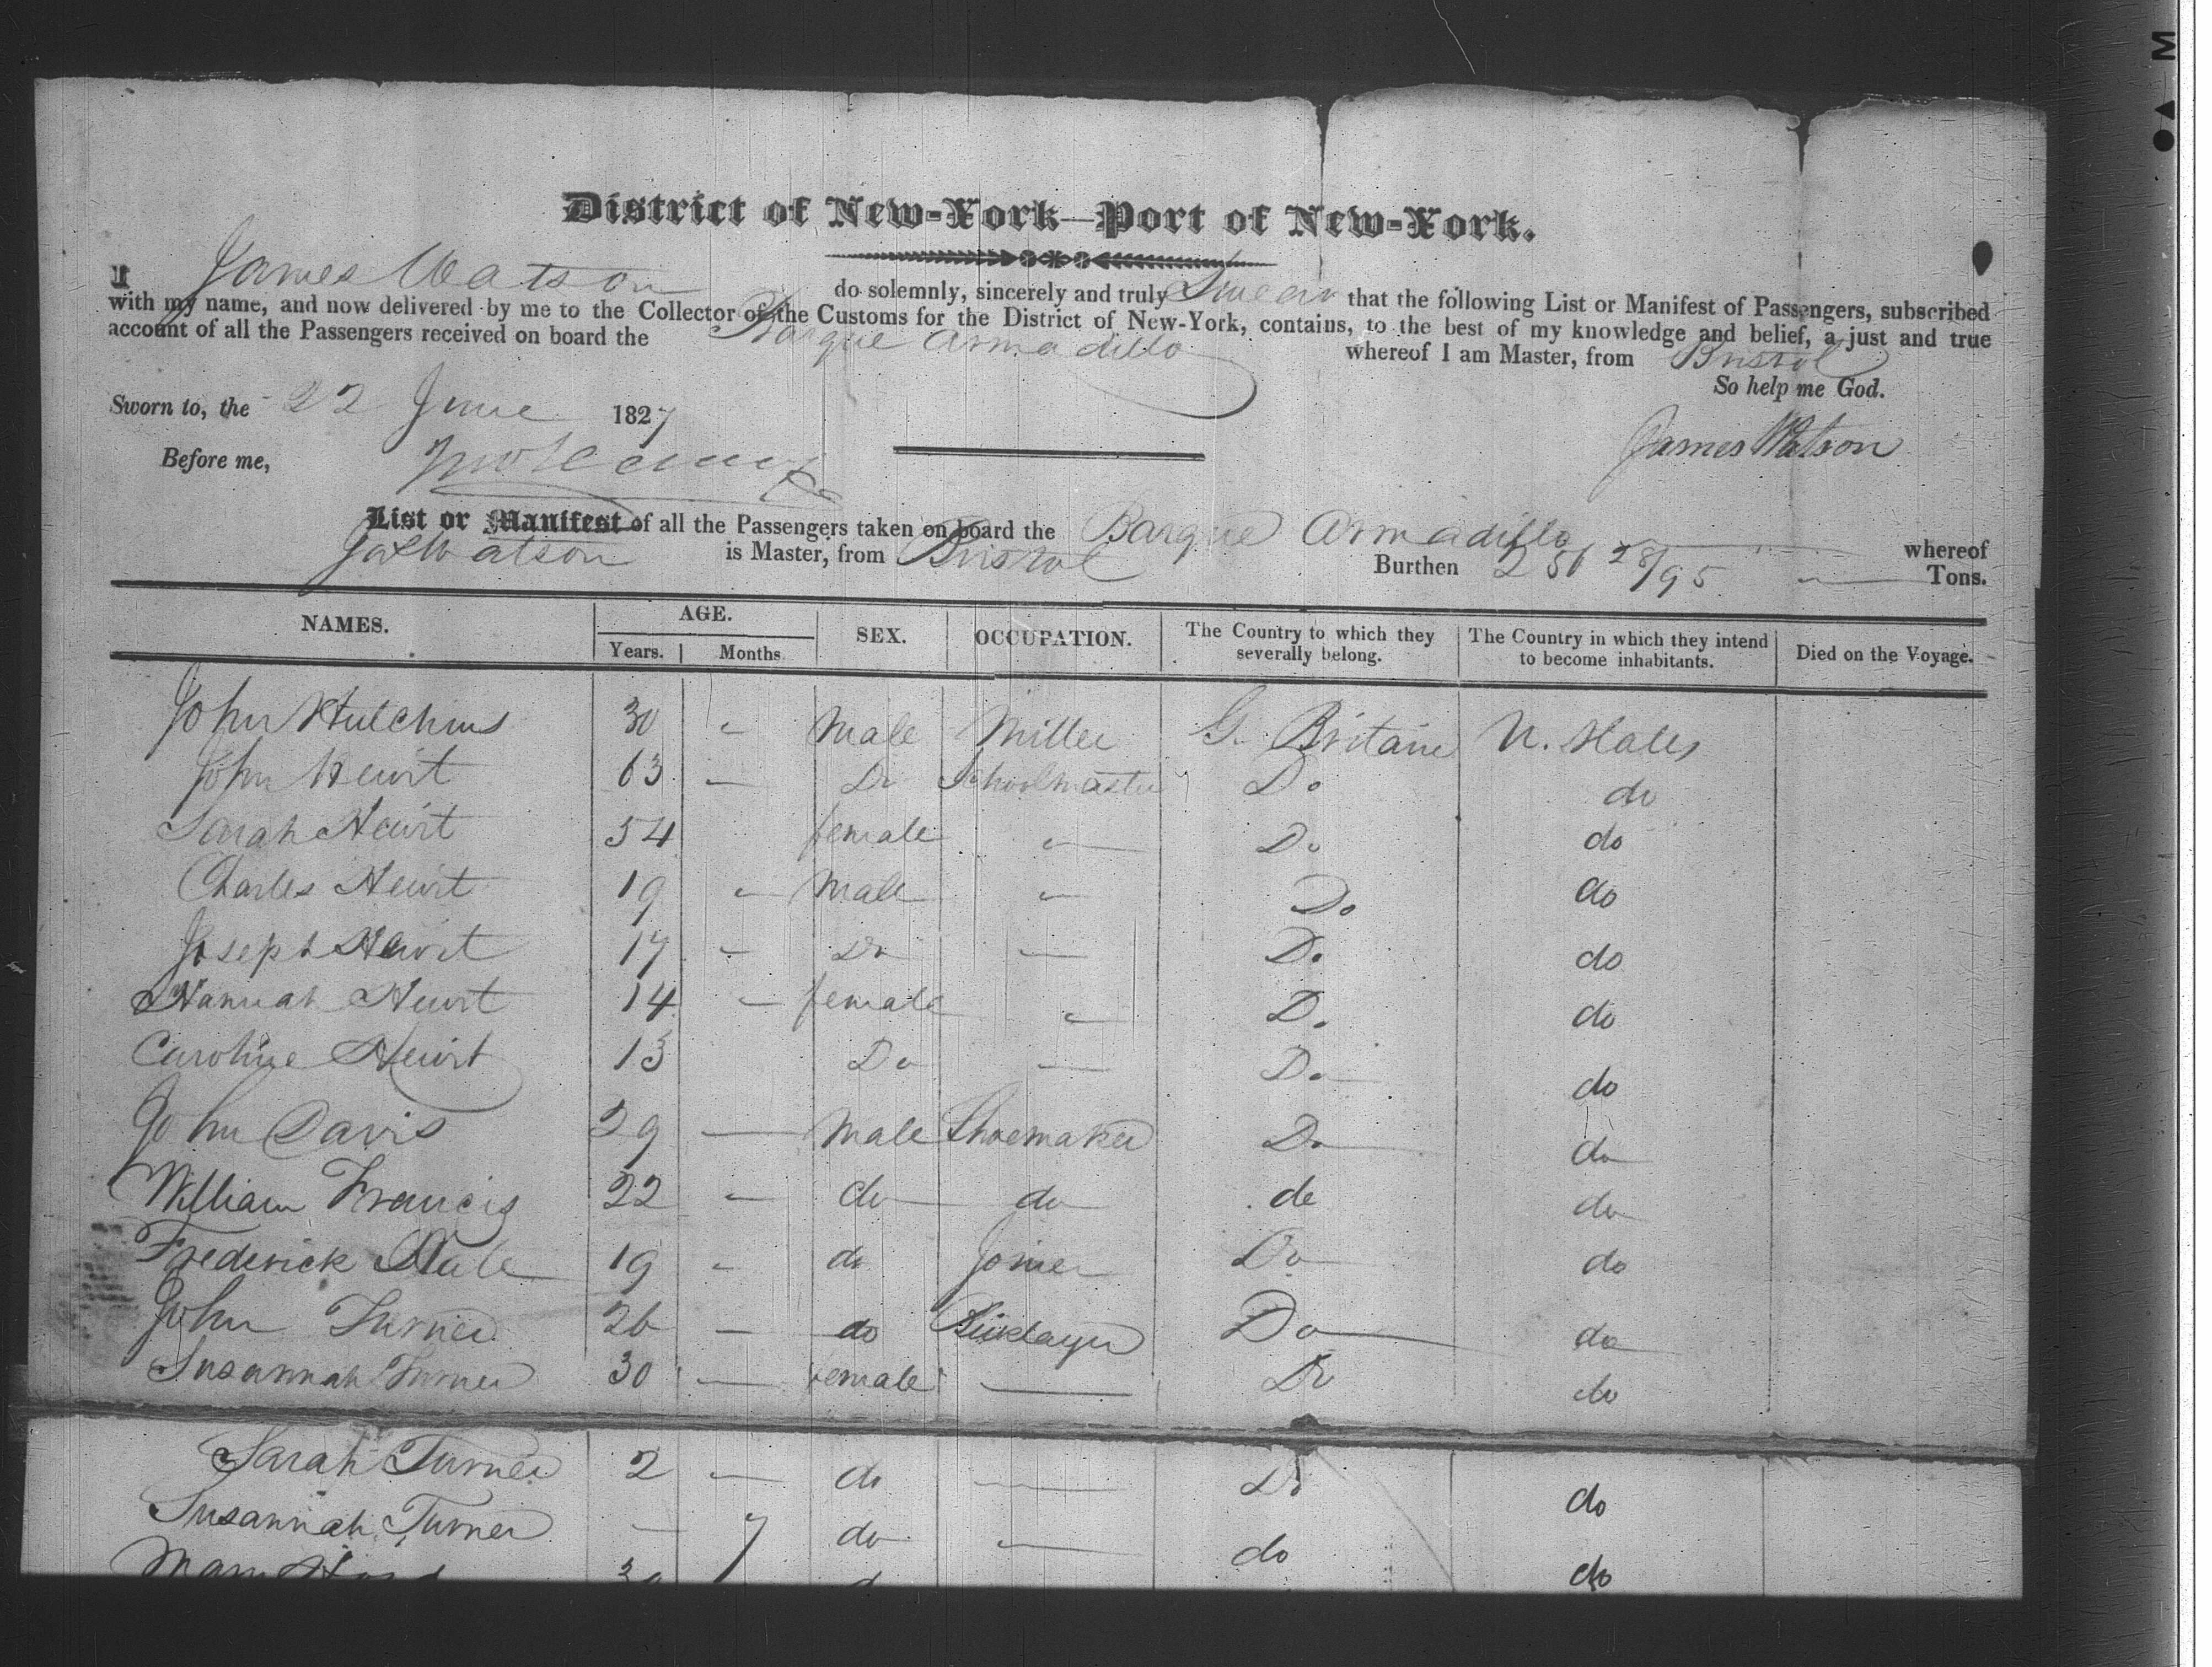 District of New-York—Port of New-York.
I James Watson do solemnly, sincerely and truly Swear that the following List or Manifest of Passengers, subscribed
with my name, and now delivered by me to the Collector of the Customs for the District of New-York, contains, to the best of my knowledge and belief, a just and true
account of all the Passengers received on board the Barque Armadillo whereof I am Master, from Bristol
So help me God.
Sworn to, the 22 June 1827
James Watson
Before me,
List or Manifest of all the Passengers taken on board the Barque Armadillo whereof
Jas Watson is Master, from Bristol Burthen 28/95 Tons.
NAMES. AGE. Years. Months SEX. OCCUPATION. The Country to which they severally belong. The Country in which they intend to become inhabitants. Died on the Voyage.
John Hutchins 30 " Male Miller G. Britain U. States
John Hewit 63 — Do Schoolmaster Do do
Sarah Hewit 54 female " Do do
Charles Hewit 19 " Male " Do do
Joseph Hewit 17 — Do — Do do
Hannah Hewit 14 — female " Do do
Caroline Hewit 13 Do — Do do
John Davis 29 — Male Shoemaker Do do
William Francis 22 — do do do do
Frederick 19 " do Joiner Do do
John Turner 26 — do Bricklayer Do do
Susannah Turner 30 — female — Do do
Sarah Turner 2 — do — Do do
Susannah Turner — 7 do — do do
Mary